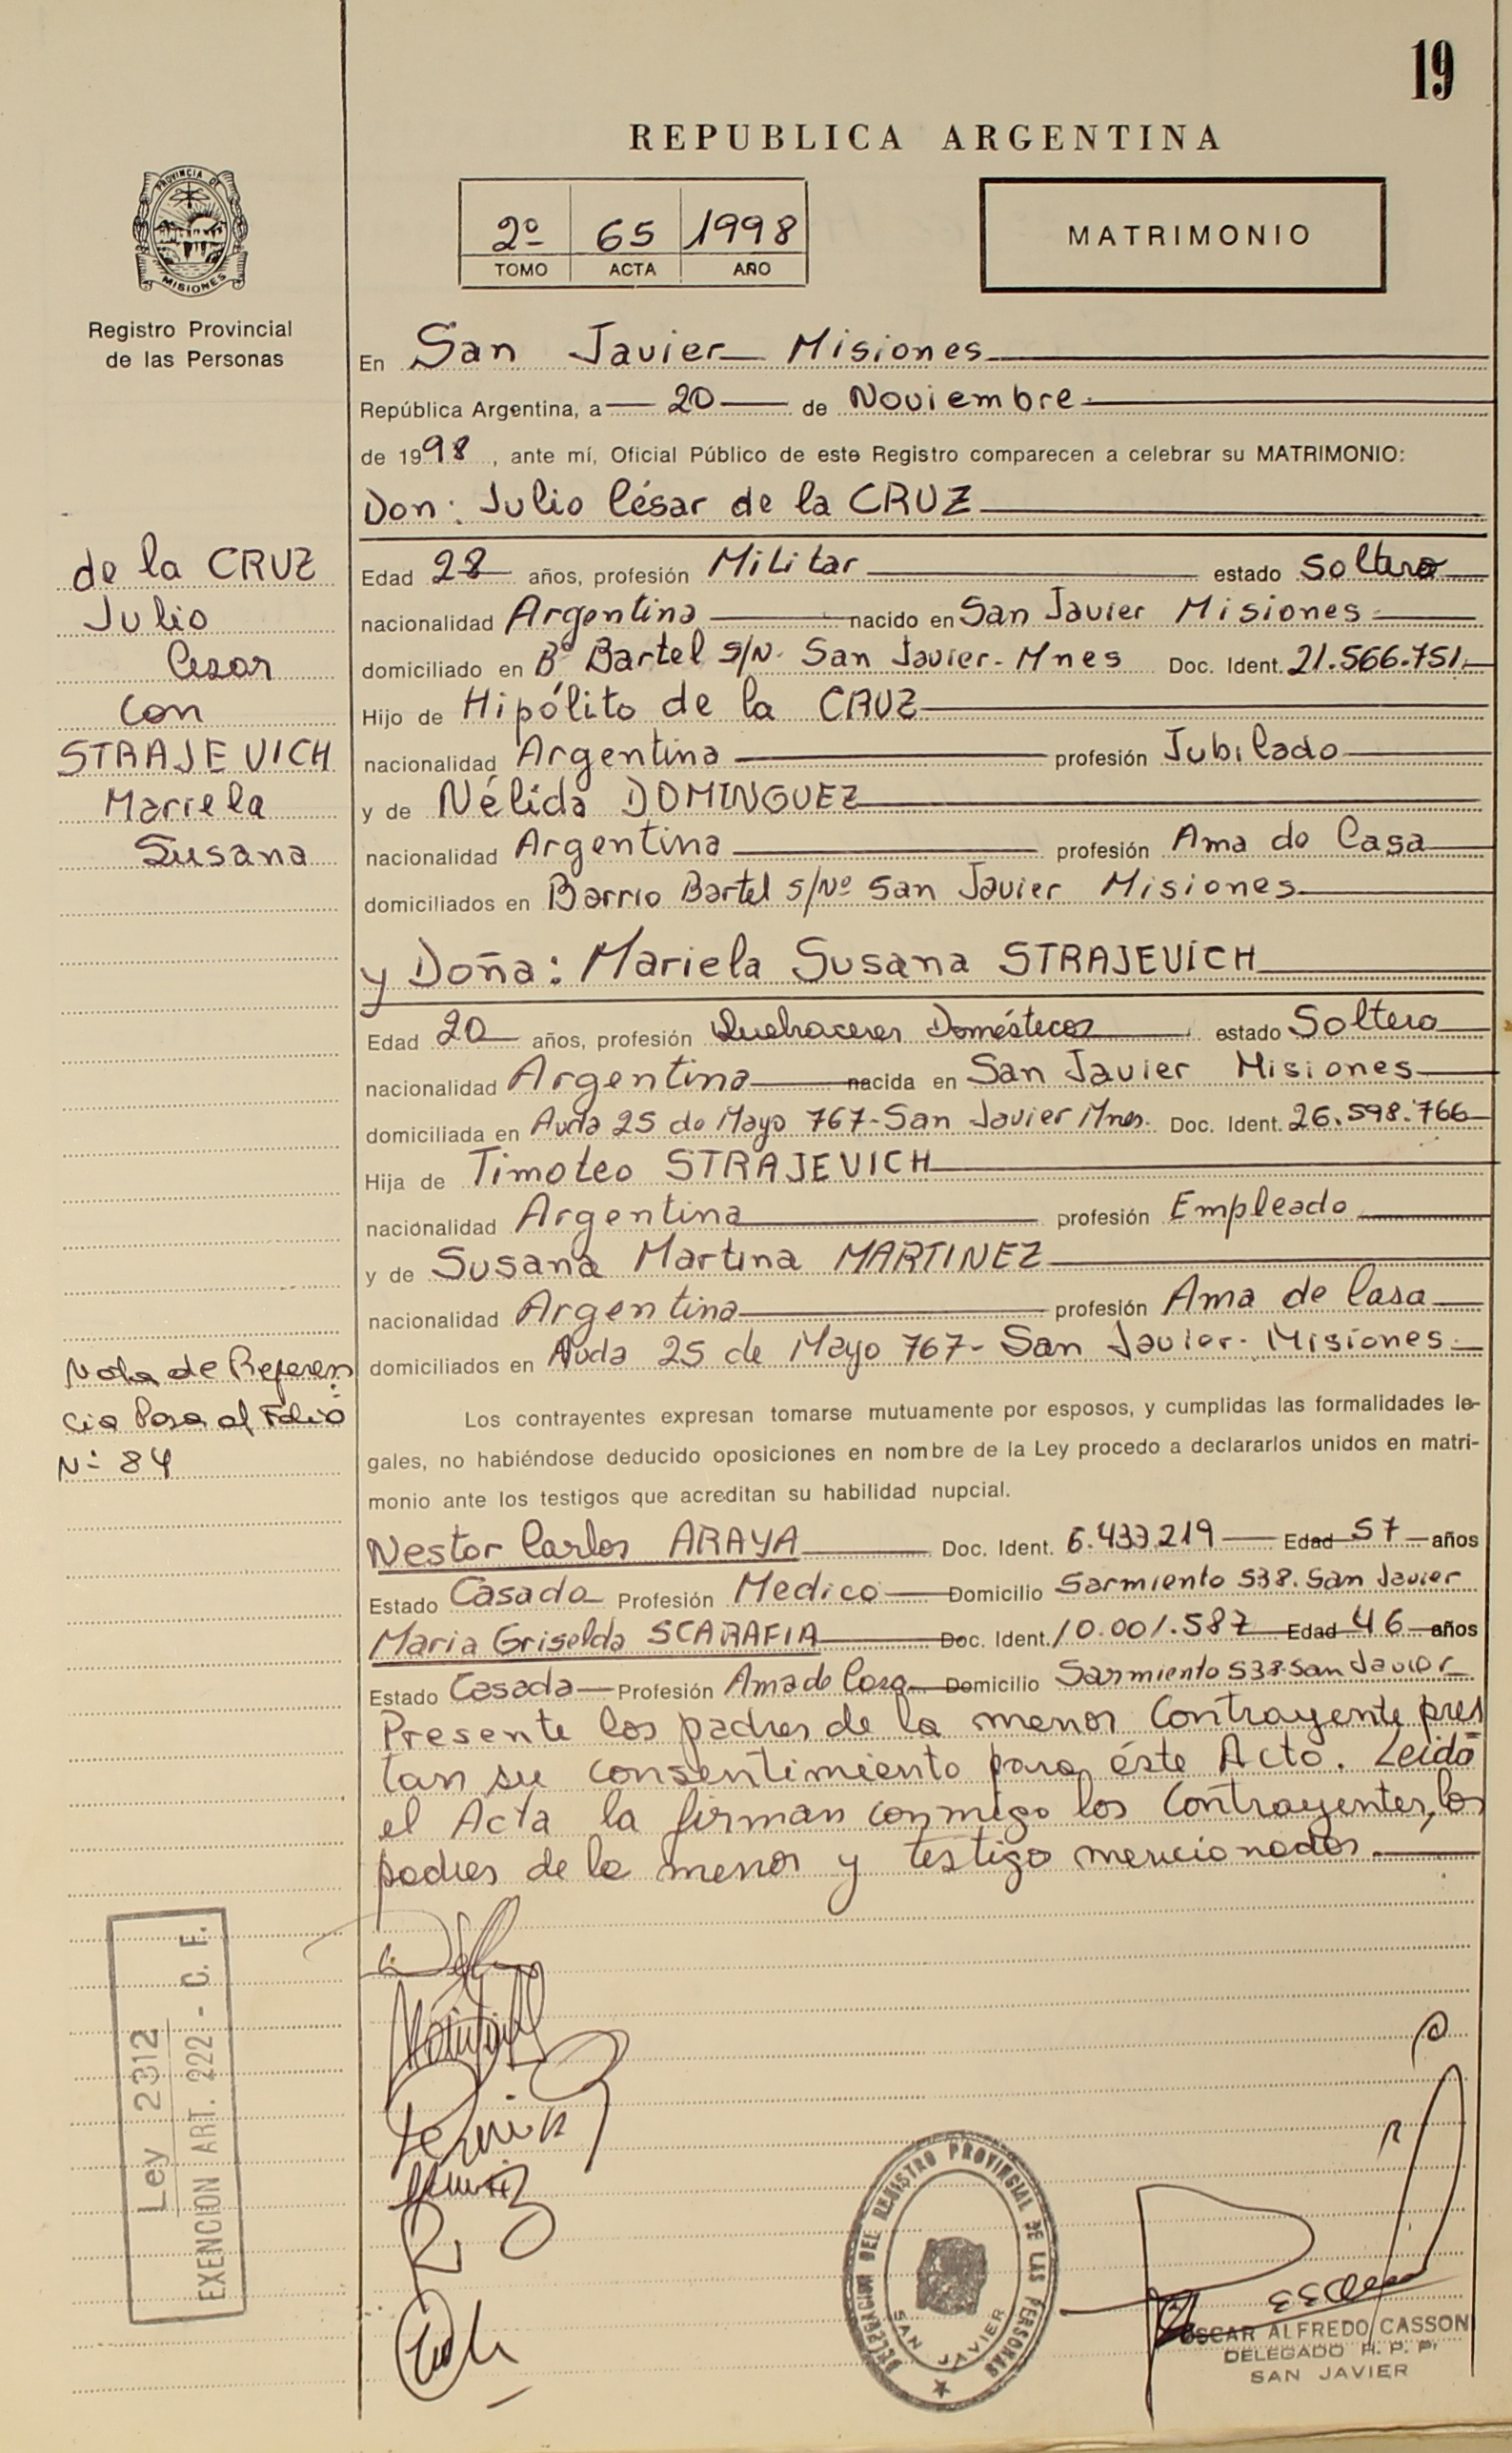 19
REPUBLICA ARGENTINA
PROVINCIA DE
MISIONES
Registro Provincial
de las Personas
2º 65 1998
TOMO ACTA AÑO
MATRIMONIO
En San Javier Misiones
República Argentina, a 20 de Noviembre
de 1998, ante mí, Oficial Público de este Registro comparecen a celebrar su MATRIMONIO:
Don: Julio César de la CRUZ
de la CRUZ
Julio
Cesar
con
STRAJEVICH
Mariela
Susana
Edad 28 años, profesión Militar estado Soltero
nacionalidad Argentina nacido en San Javier Misiones
domiciliado en Bº Bartel S/N. San Javier-Mnes Doc. Ident. 21.566.751.
Hijo de Hipólito de la CRUZ
nacionalidad Argentina profesión Jubilado
y de Nélida DOMINGUEZ
nacionalidad Argentina profesión Ama de Casa
domiciliados en Barrio Bartel S/Nº San Javier Misiones
y Doña: Mariela Susana STRAJEVICH
Edad 20 años, profesión Quehaceres Domésticos estado Soltera
nacionalidad Argentina nacida en San Javier Misiones
domiciliada en Avda 25 de Mayo 767-San Javier Mnes. Doc. Ident. 26.598.766
Hija de Timoteo STRAJEVICH
nacionalidad Argentina profesión Empleado
y de Susana Martina MARTINEZ
nacionalidad Argentina profesión Ama de Casa
domiciliados en Avda 25 de Mayo 767- San Javier-Misiones
Nota de Referen
cia Pasa al Folio
Nº 84
Los contrayentes expresan tomarse mutuamente por esposos, y cumplidas las formalidades le-
gales, no habiéndose deducido oposiciones en nombre de la Ley procedo a declararlos unidos en matri-
monio ante los testigos que acreditan su habilidad nupcial.
Nestor Carlos ARAYA Doc. Ident. 6.433.219 Edad 57 años
Estado Casado Profesión Medico Domicilio Sarmiento 538. San Javier
Maria Griselda SCARAFIA Doc. Ident. 10.001.587 Edad 46 años
Estado Casada Profesión Ama de Casa Domicilio Sarmiento 538-San Javier
Presente los padres de la menor Contrayente pres
tan su consentimiento para éste Acto. Leido
el Acta la firman conmigo los Contrayentes, los
padres de la menor y testigo mencionados.
Ley 2312
EXENCION ART. 222 - C. F.
DELEGACION DEL REGISTRO PROVINCIAL DE LAS PERSONAS
SAN JAVIER
OSCAR ALFREDO CASSON
DELEGADO R. P. P.
SAN JAVIER